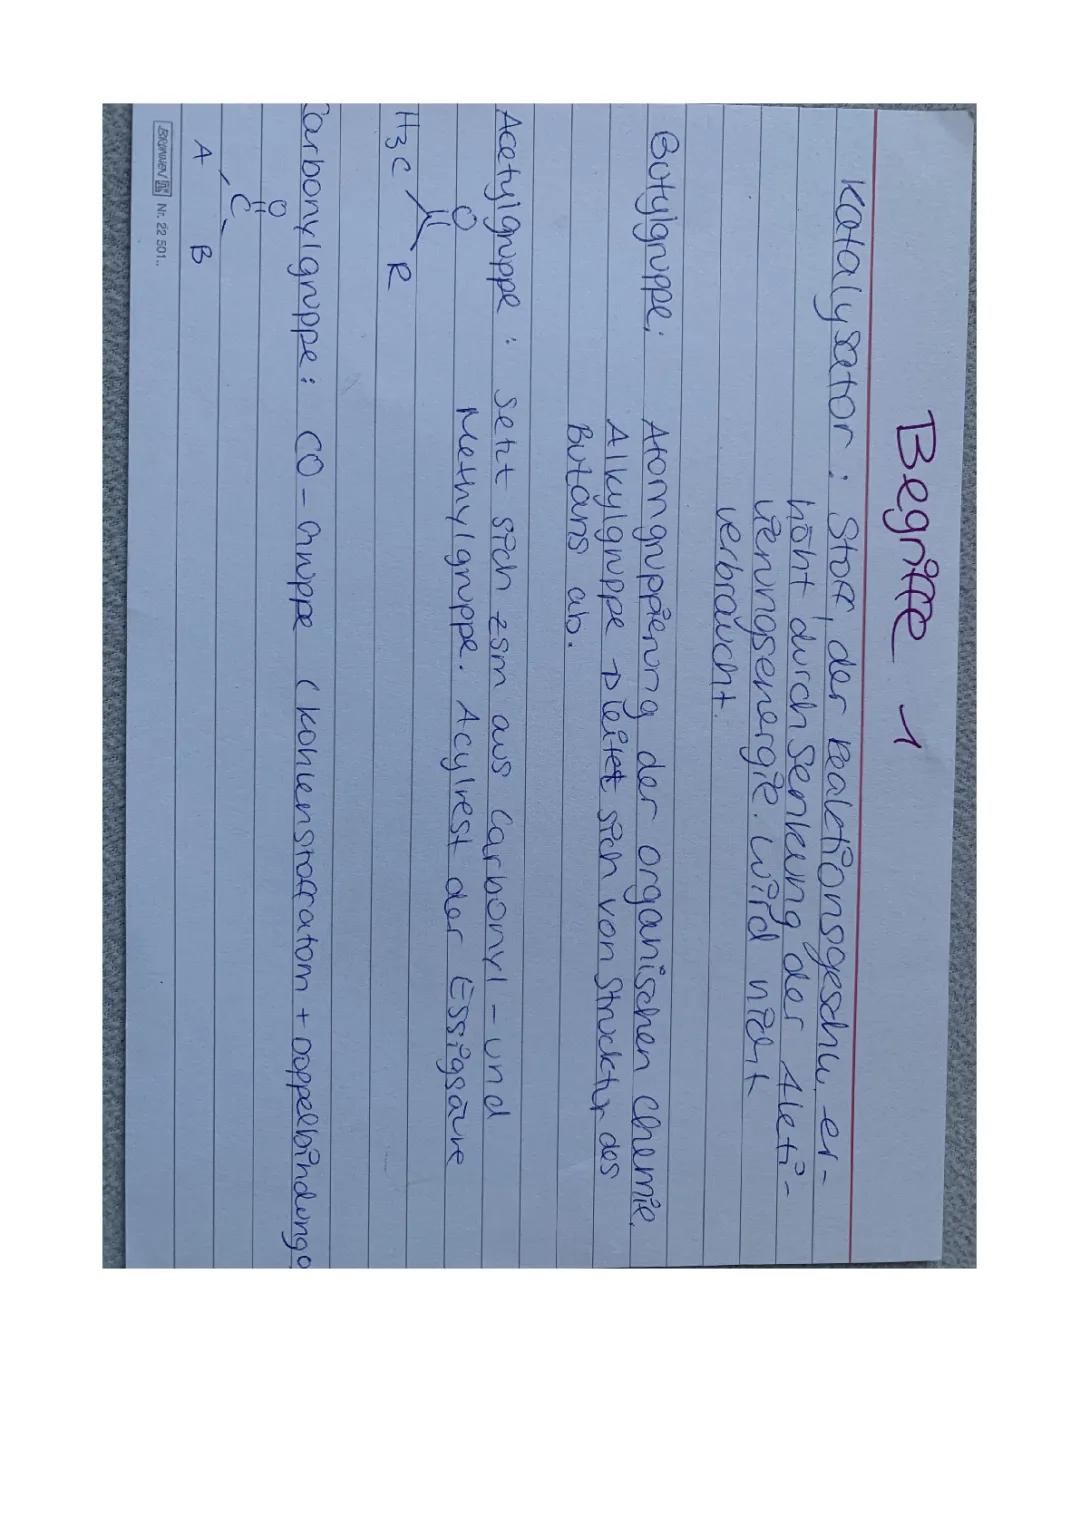 Begriffe 1
Katalysator: Stoff, der Reaktionsgeschw. er-
höht durch Senkung der Akti-
vierungsenergie. Wird nicht
verbraucht.
Butylgruppe: Atomgruppierung der organischen Chemie.
Alkylgruppe → leitet sich von Strucktur des
Butans ab.
Acetylgruppe: Setzt sich zsm aus Carbonyl- und
Methylgruppe. Acylrest der Essigsäure
O
H3C R
Carbonylgruppe: CO-Gruppe (Kohlenstoffatom + Doppelbindung O
O
C
A B
BRUNNEN Nr. 22 501..